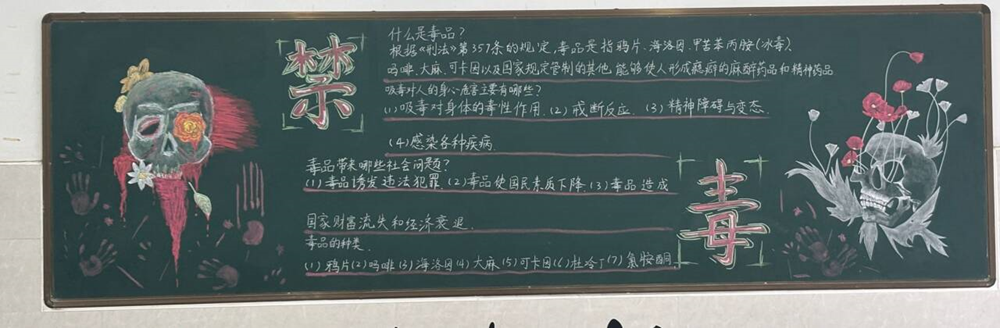 禁
什么是毒品？
根据《刑法》第357条的规定，毒品是指鸦片、海洛因、甲苦苯丙胺（冰毒）、
吗啡、大麻、可卡因以及国家规定管制的其他能够使人形成瘾癖的麻醉药品和精神药品
吸毒对人的身心危害主要有哪些？
(1)吸毒对身体的毒性作用、(2)戒断反应、(3)精神障碍与变态
(4)感染各种疾病
毒品带来哪些社会问题？
(1)毒品诱发违法犯罪(2)毒品使国民素质下降(3)毒品造成
国家财富流失和经济衰退
毒品的种类
(1)鸦片(2)吗啡(3)海洛因(4)大麻(5)可卡因(6)杜冷丁(7)氯胺酮
毒